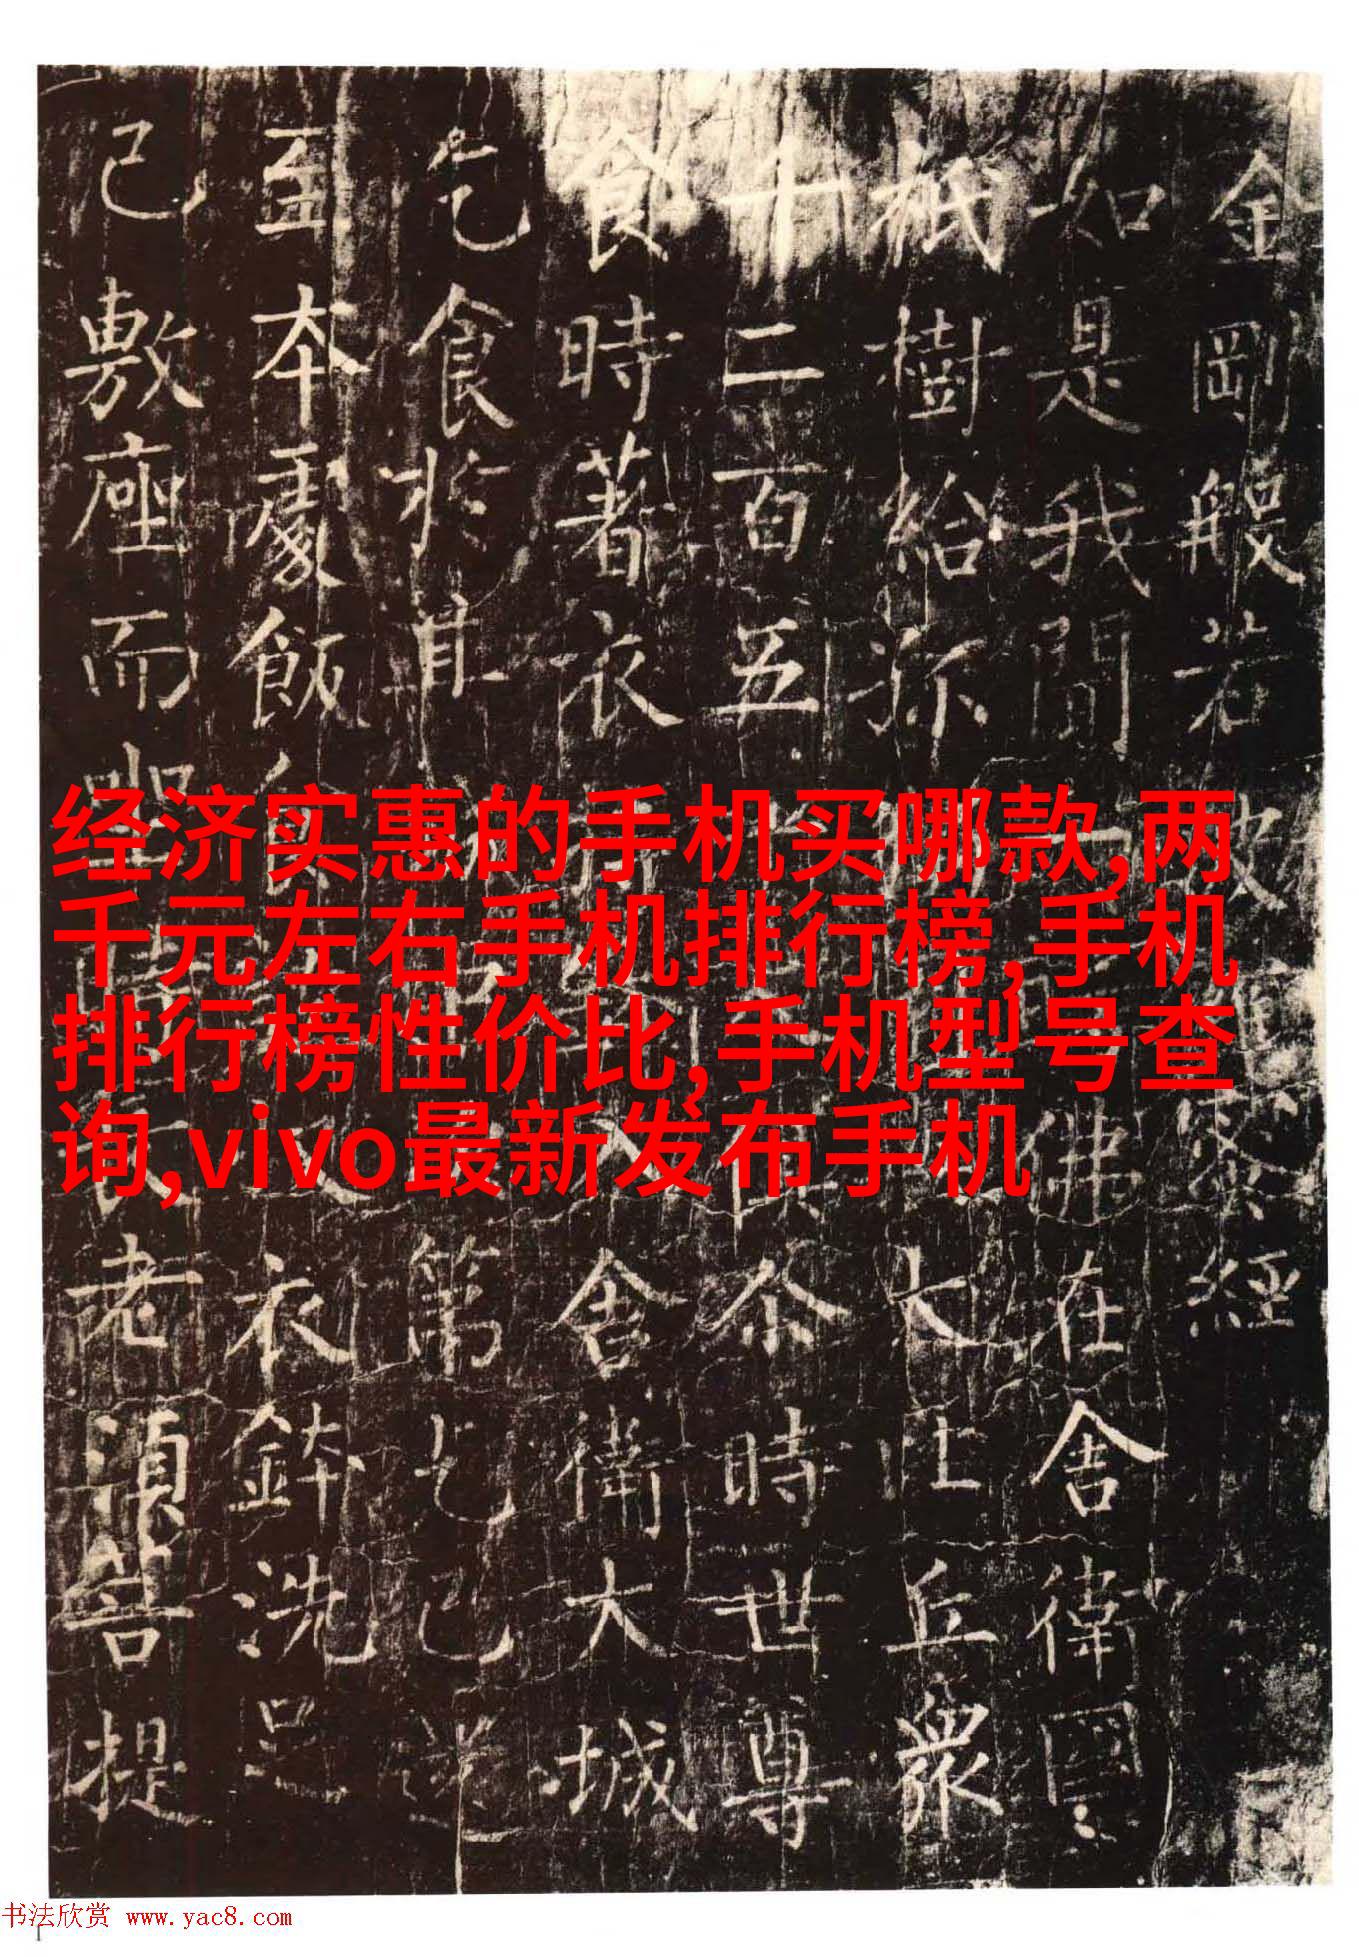 金剛般若波蜜經
如是我聞佛在舍衛國
祇樹給孤大比丘衆
千二百五俱尒時世尊
食時著衣入舍衛大城
乞食於其第乞已還
至本處飯食衣鉢洗足
已敷座而坐老須菩提
经济实惠的手机买哪款,两
千元左右手机排行榜,手机
排行榜性价比,手机型号查
询,vivo最新发布手机
书法欣赏 www.yac8.com